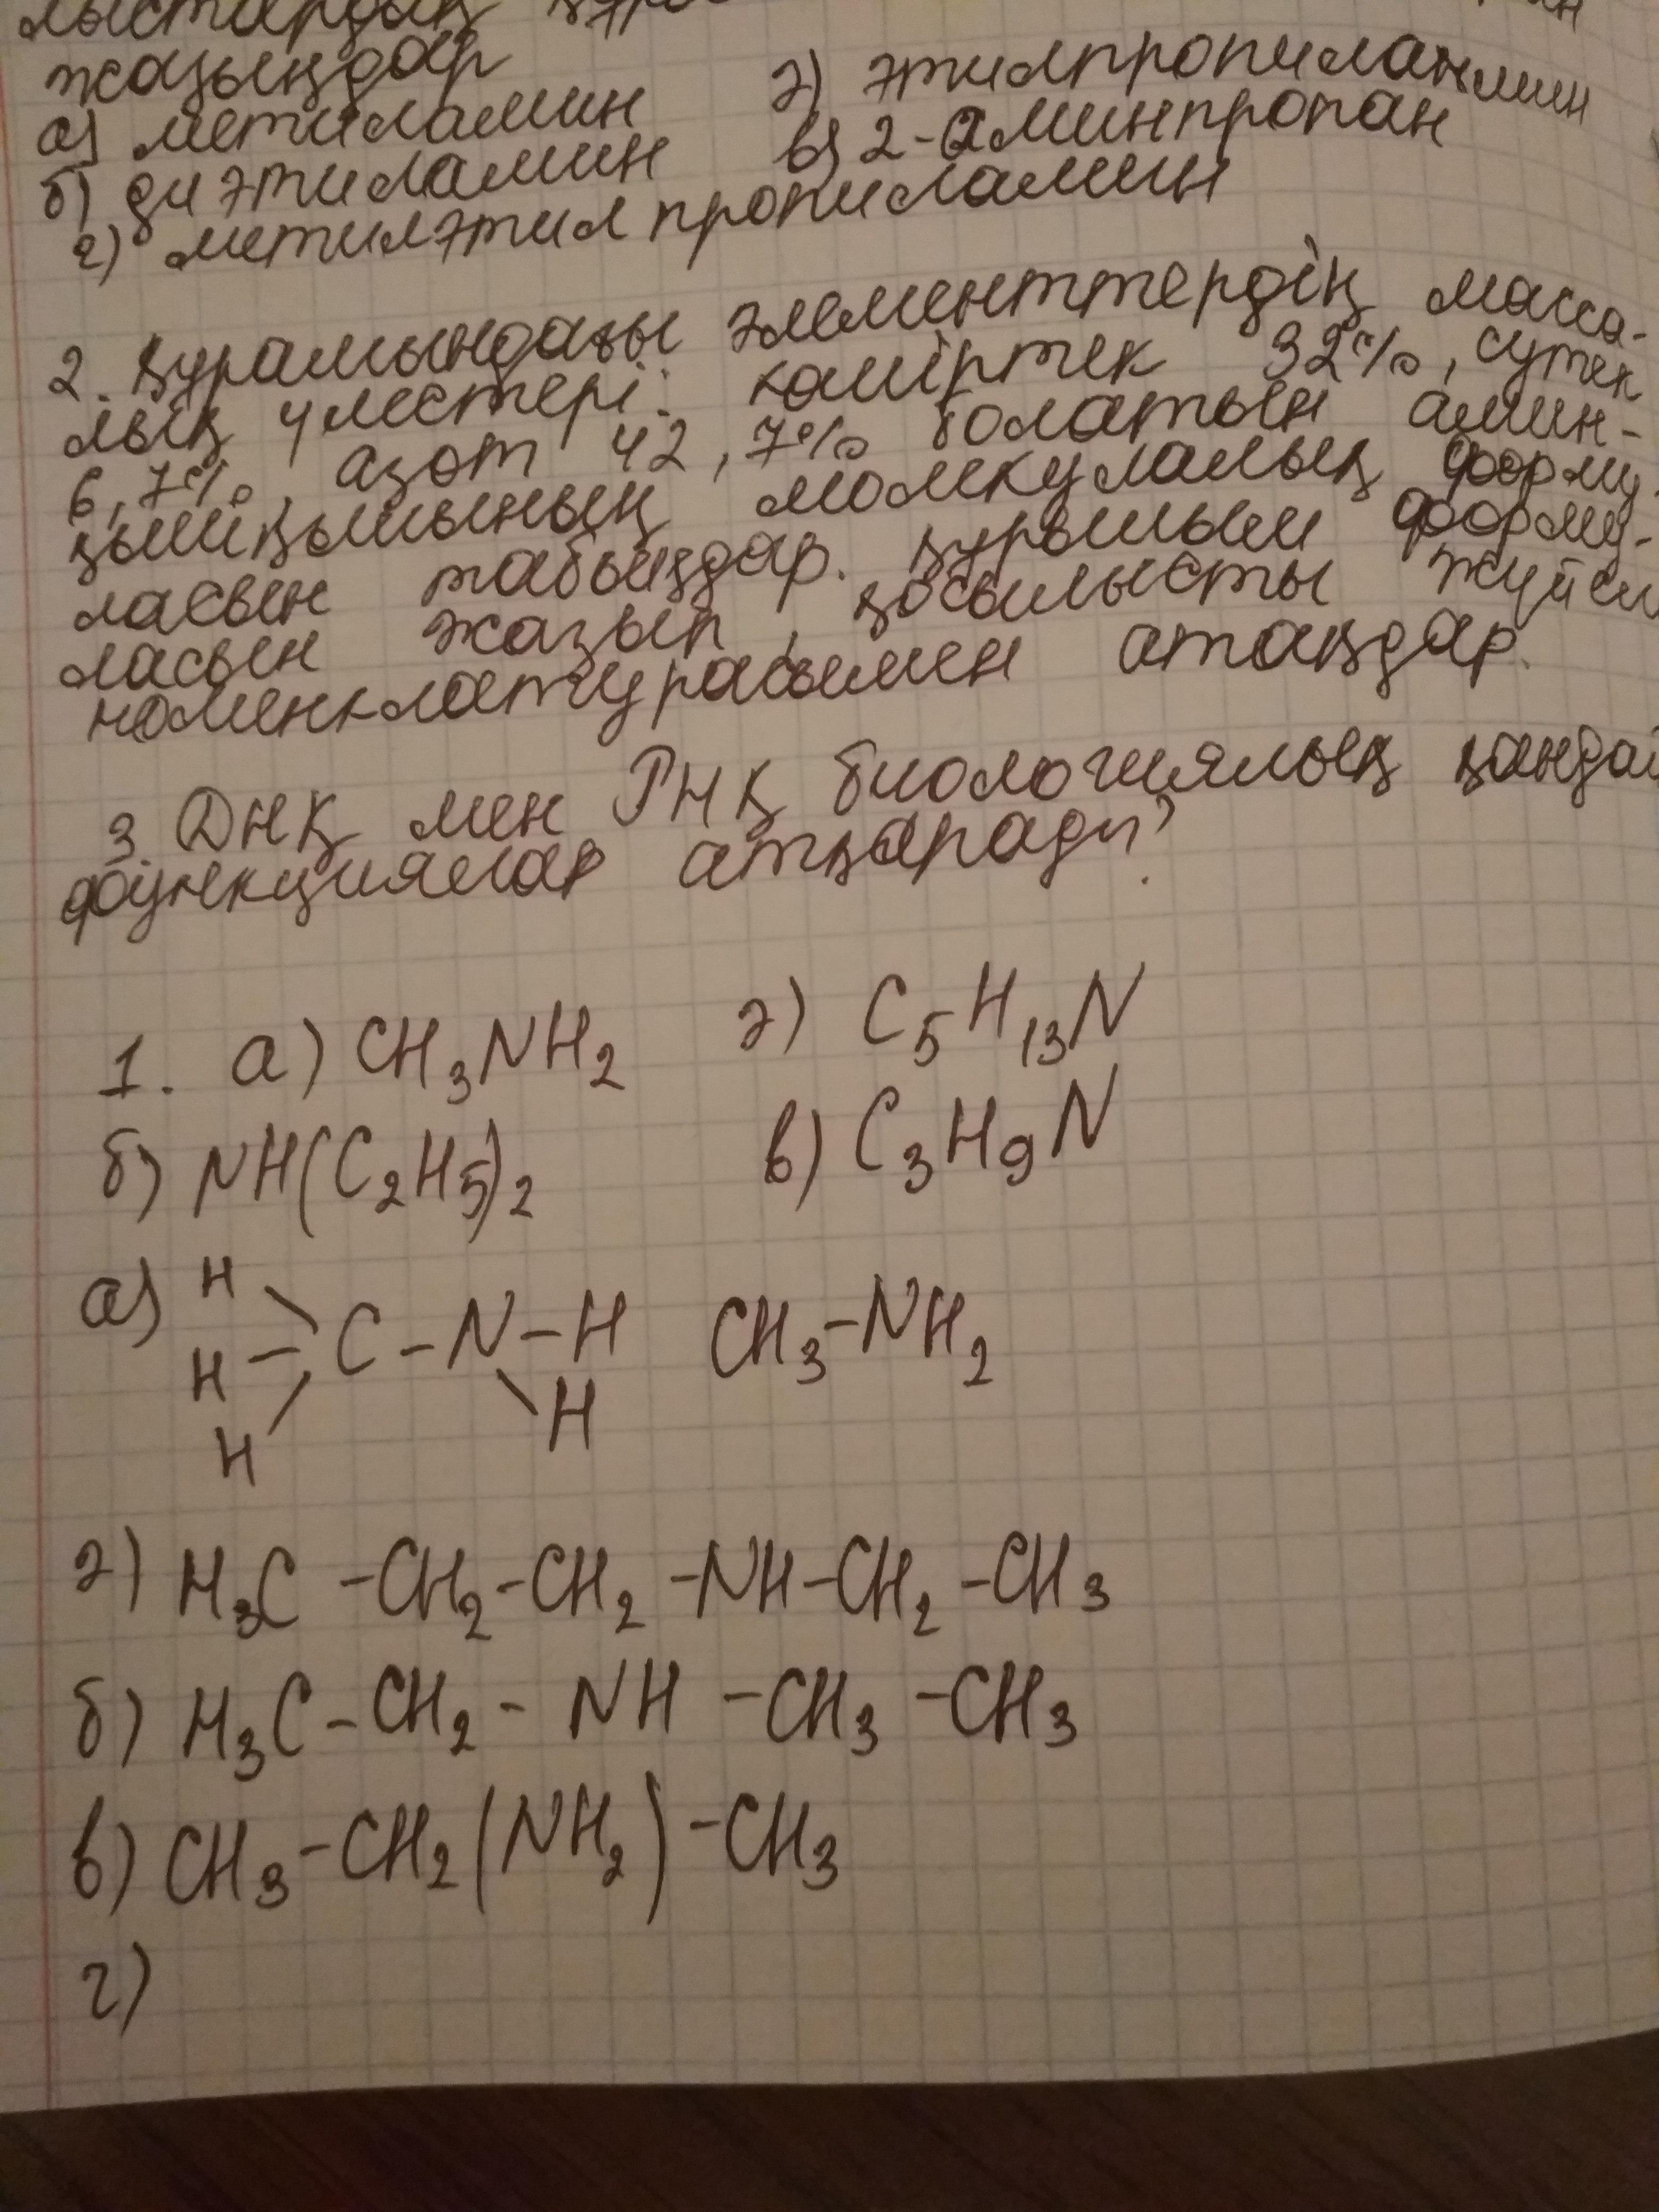 жазыңдар
а) метиламин ә) этилпропиламин
б) диэтиламин в) 2-аминпропан
г) метилэтилпропиламин
2. Құрамындағы элементтердің масса-
лық үлестері: көміртек 32%, сутек
6,7%, азот 42,7% болатын амин-
қышқылының молекулалық форму-
ласын табыңдар. Құрылым форму-
ласын жазып, қосылысты
номенклатурасымен атаңдар.
3 ДНҚ мен РНҚ биологиялық қандай
функциялар атқарады?
1. а) CH3NH2 ә) C5H13N
б) NH(C2H5)2 в) C3H9N
а) H H H C - N - H H CH3-NH2
ә) H3C - CH2 - CH2 - NH - CH2 - CH3
б) H3C - CH2 - NH - CH3 - CH3
в) CH3 - CH2(NH2) - CH3
г)